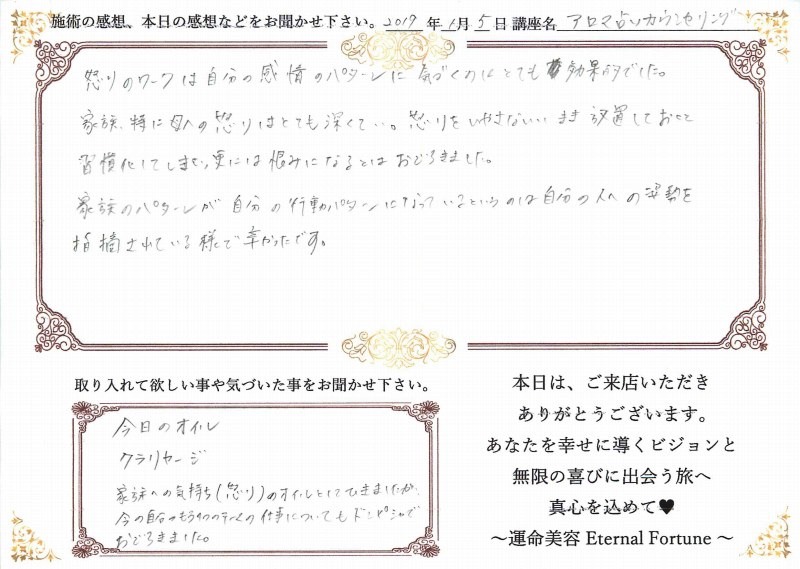 施術の感想、本日の感想などをお聞かせ下さい。2019年1月5日 講座名 アロマ占いカウンセリング
怒りのワークは自分の感情のパターンに気づくのにとても効果的でした。
家族、特に母への怒りはとても深くて…。怒りをいやさないまま放置しておくと
習慣化してしまい、更には恨みになるとはおどろきました。
家族のパターンが自分の行動パターンになっているというのは自分の人への姿勢を
指摘されている様で辛かったです。
取り入れて欲しい事や気づいた事をお聞かせ下さい。
今日のオイル
クラリセージ
家族への気持ち(怒り)のオイルとしてひきましたが、
今の自分のもう1つのテーマの仕事についてもドンピシャで
おどろきました。
本日は、ご来店いただき
ありがとうございます。
あなたを幸せに導くビジョンと
無限の喜びに出会う旅へ
真心を込めて♥
～運命美容 Eternal Fortune ～